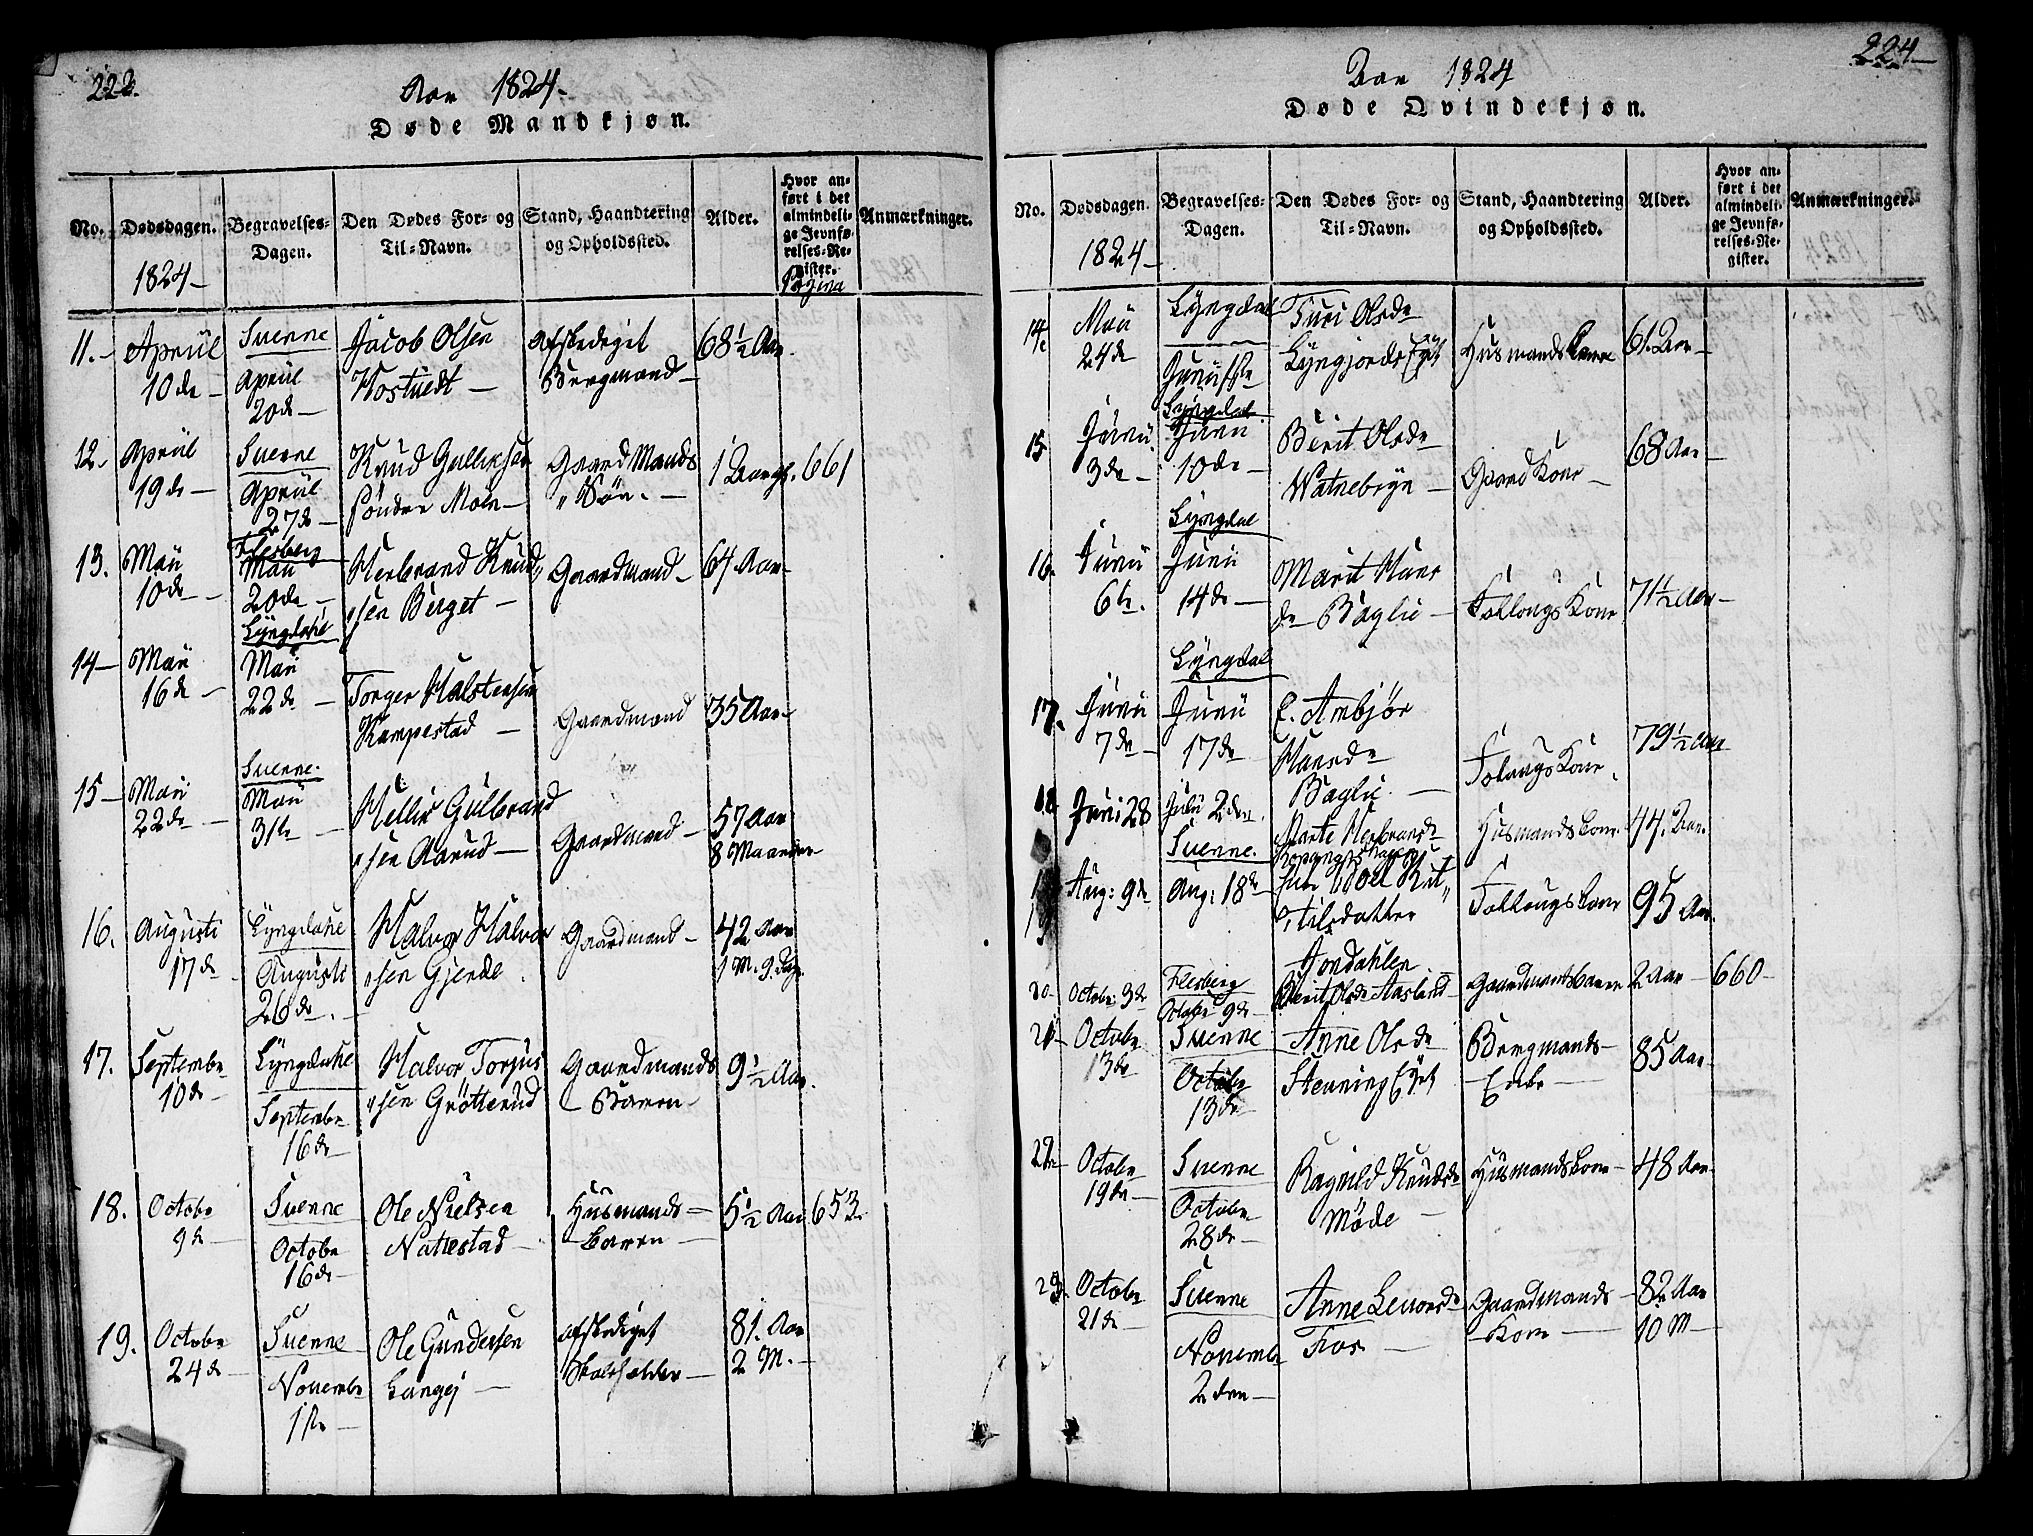 222.
Aar 1824.
Døde Mandkjøn.
No. Dødsdagen. Begravelses-Dagen. Den Dødes For- og Til-Navn. Stand, Haandtering og Opholdssted. Alder. Hvor anført i det almindelige Jevnførelses-Register. Anmærkninger.
1824 Pagina
11. Aprill 10de Svenne Aprill 20de Jacob Olsen afskediget Bergmand 68½ Aar
12. Aprill 19de Svenne Aprill 27de Knud Gulliksen Sönder Moen Gaard Mands Søn 1 661
13. Maii 10de Flesberg Maii 20de Herbrand Knudsen Berget Gaardmand 64 Aar
14 Maii 16de Lyngdahl Maii 22de Torger Halstensen Kampestad Gaardmand 35 Aar
15 Maii 22de Svenne Maii 31te Gulbrandsen Aarud Gaardmand 57 Aar 8 Maaneder
16. Augusti 17de Lyngdahl Augusti 26de Halvor Halvorsen Gjerde Gaardmand 42 Aar 1 M. 9 Dage
17. Septembr 10de Lyngdahl Septembr 16de Halvor Torjussen Grötterud Gaardmands Barn 9½ Aar.
18. Octobr 9de Svenne Octobr 16de Ole Nielsen Nattestad Husmands Barn 5½ Aar 653
19. Octobr 24de Svenne Novembr 1te Ole Gundersen Langej afskediget Skoleholder 81. Aar 2 M.
224
Aar 1824
Døde Qvindekjøn.
No. Dødsdagen. Begravelses-Dagen. Den Dødes For- og Til-Navn. Stand, Haandtering og Opholdssted. Alder. Hvor anført i det almindelige Jevnførelses-Register. Anmærkninger.
1824
14 Maii 24de Lyngdal Junii 1ste Turi Olsdr Lyngjords Ejet Husmands Kone 61. Aar
15 Junii 3de Lyngdal Junii 10de Berit Olsdr Watnebryn Gaard Kone 68 Aar
16. Junii 6te Lyngdal Junii 14de Marit Hansdr Baglie Follougs Kone 71½ Aar
17. Junii 7de Lyngdal Junii 17de E. Ambjør Hansdr Baglie Follougs Kone 79½ Aar
18. Juni 28 Julii 2den Marte Herbrandsdr Husmands Kone 44. Aar
19 Aug: 9de Svenne. Aug: 18de Joel Kittilsdatter Jondahlen Follougs Kone 95 Aar.
20 Octobr: 3de Flesberg Octobr 9de Berit Olsdr Aasland Gaardmands Barn 2 Aar 660
21 Octobr 13de Svenne Octobr 13de Anne Olsdr Stenning Ejet Bergmands Enke 85 Aar
22 Octobr 19de Svenne Octobr 28de Ragnild Knudsdr Møde Husmands Kone 48 Aar
23. Octobr 21de Svenne Novembr 2den Anne Levorsdr Fos Gaardmands Kone 82 Aar 10 M